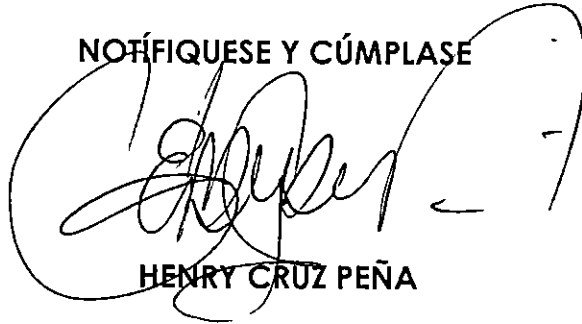 NOTÍFIQUESE Y CÚMPLASE
HENRY CRUZ PEÑA